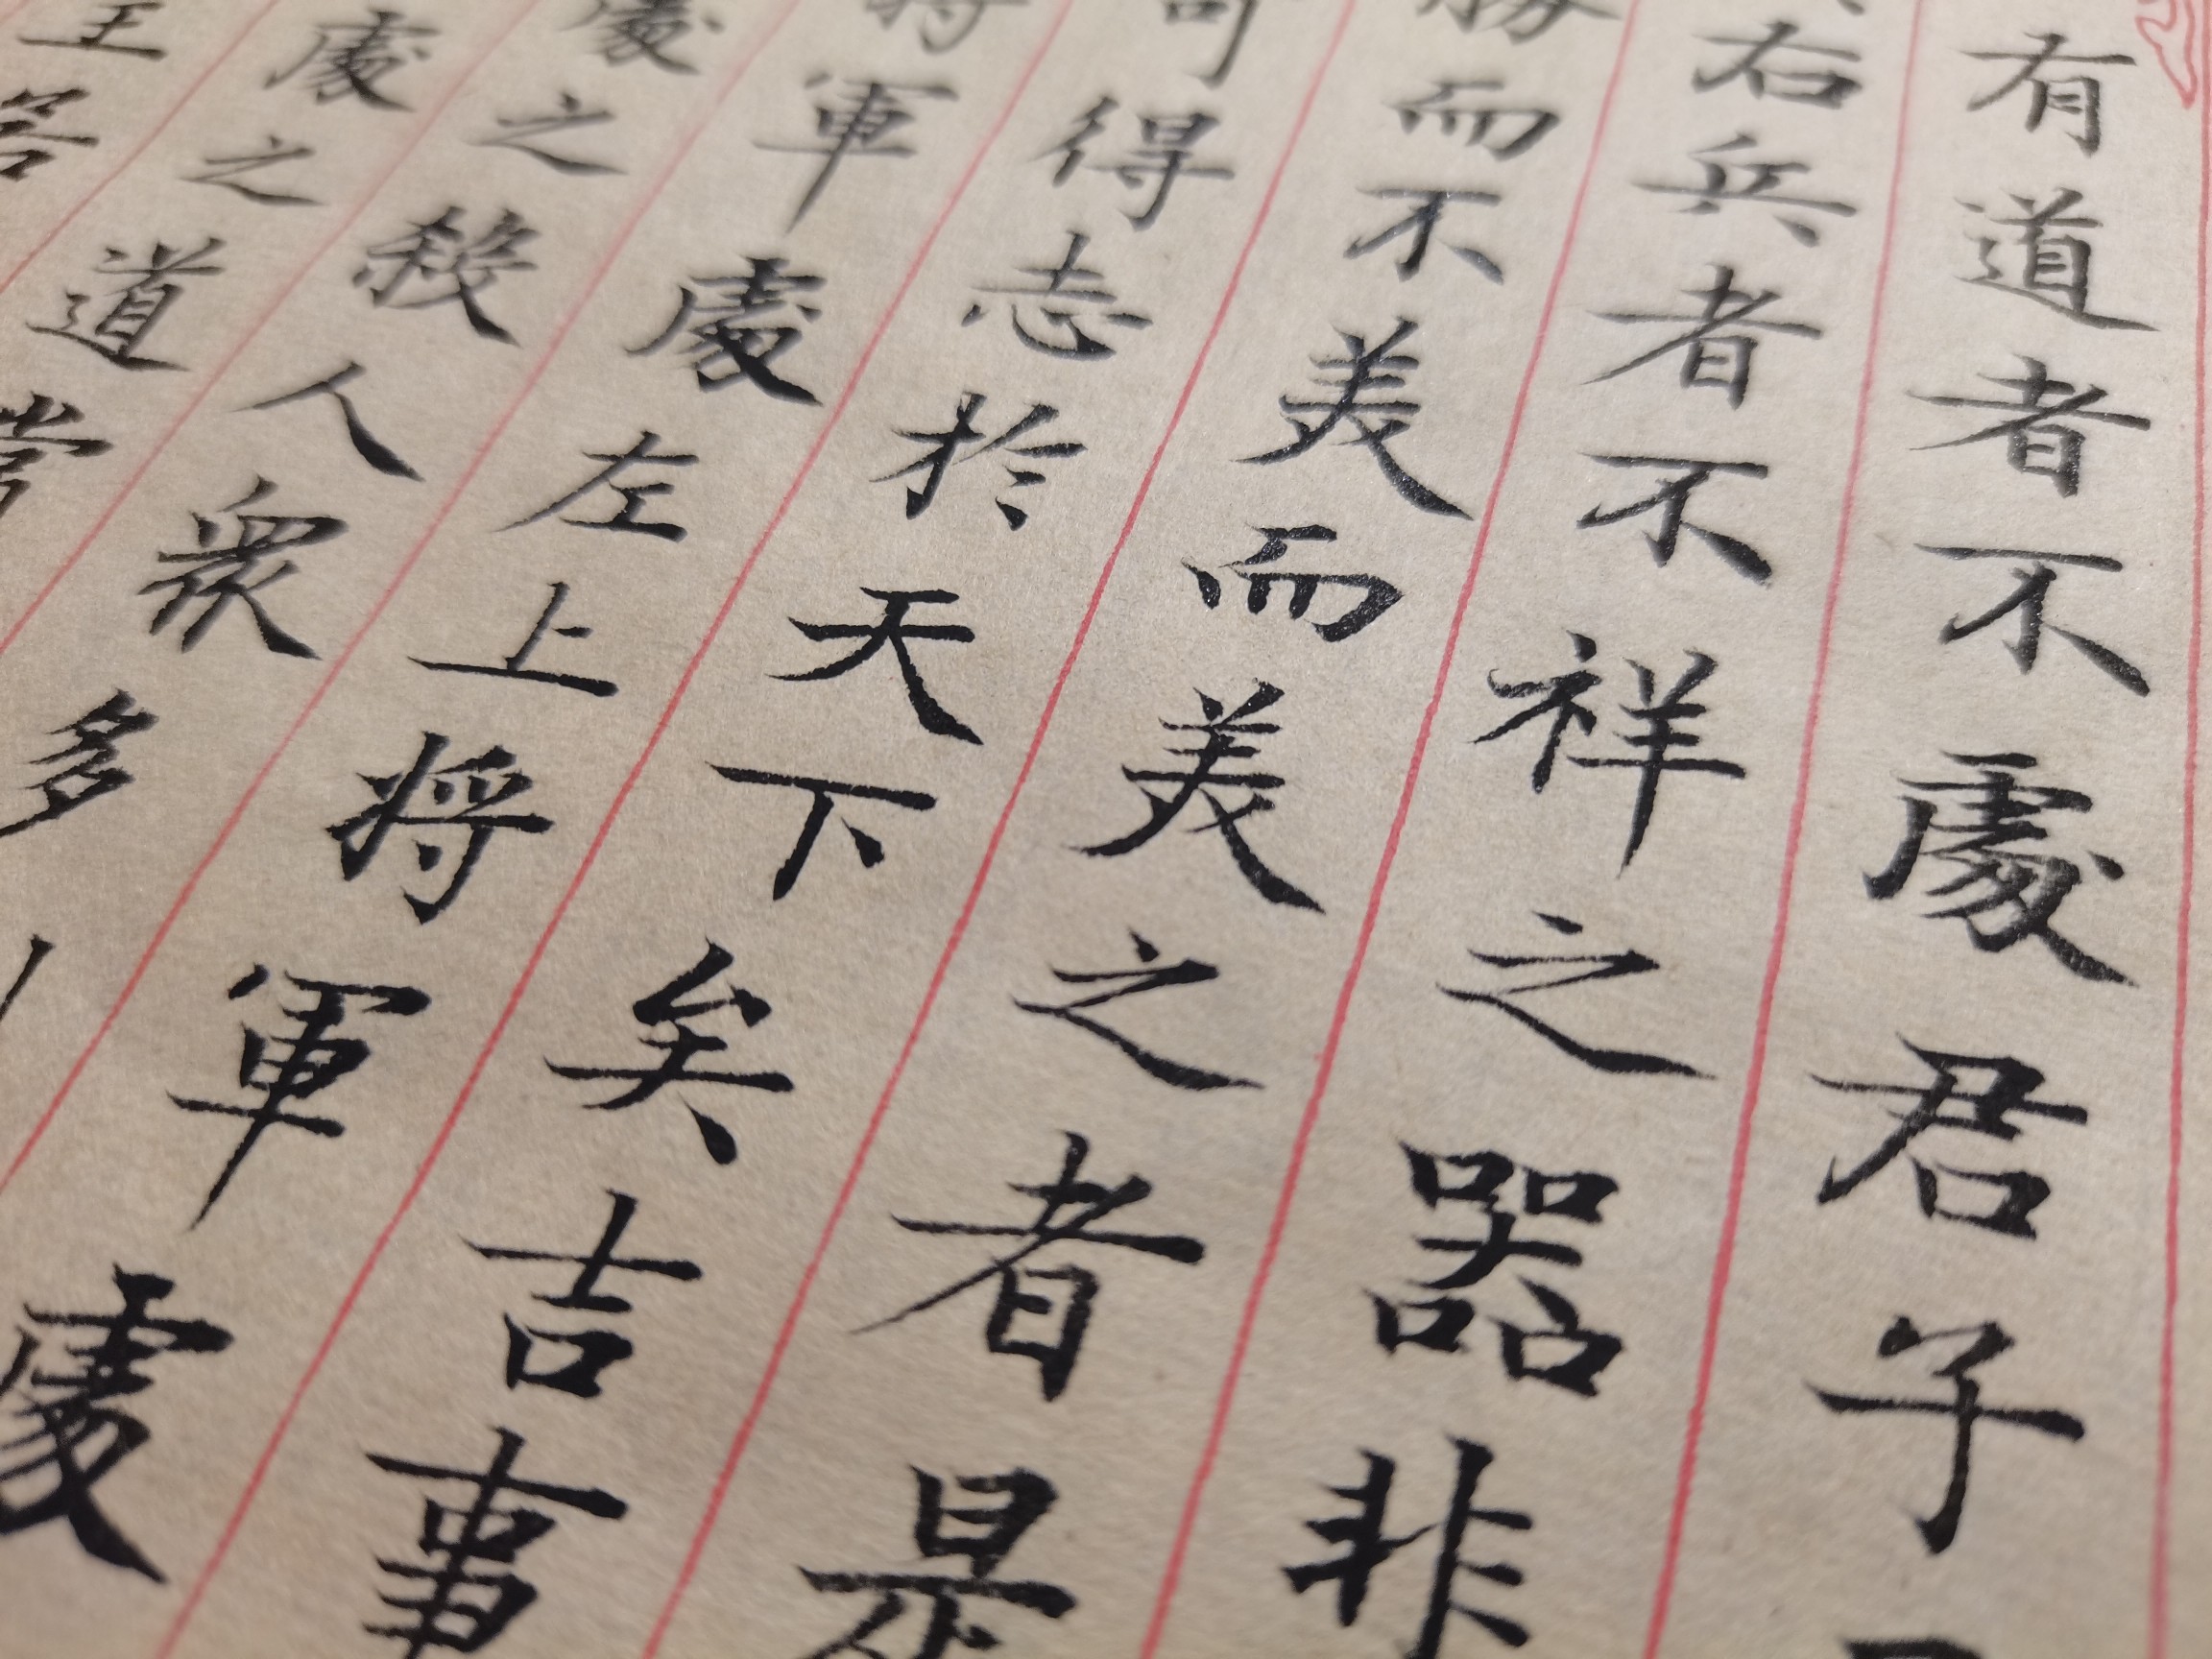 有道者不處君子
右兵者不祥之器非
勝而不美而美之者是
可得志於天下矣吉事
將軍處左上將軍處
處之殺人衆多
處之道常